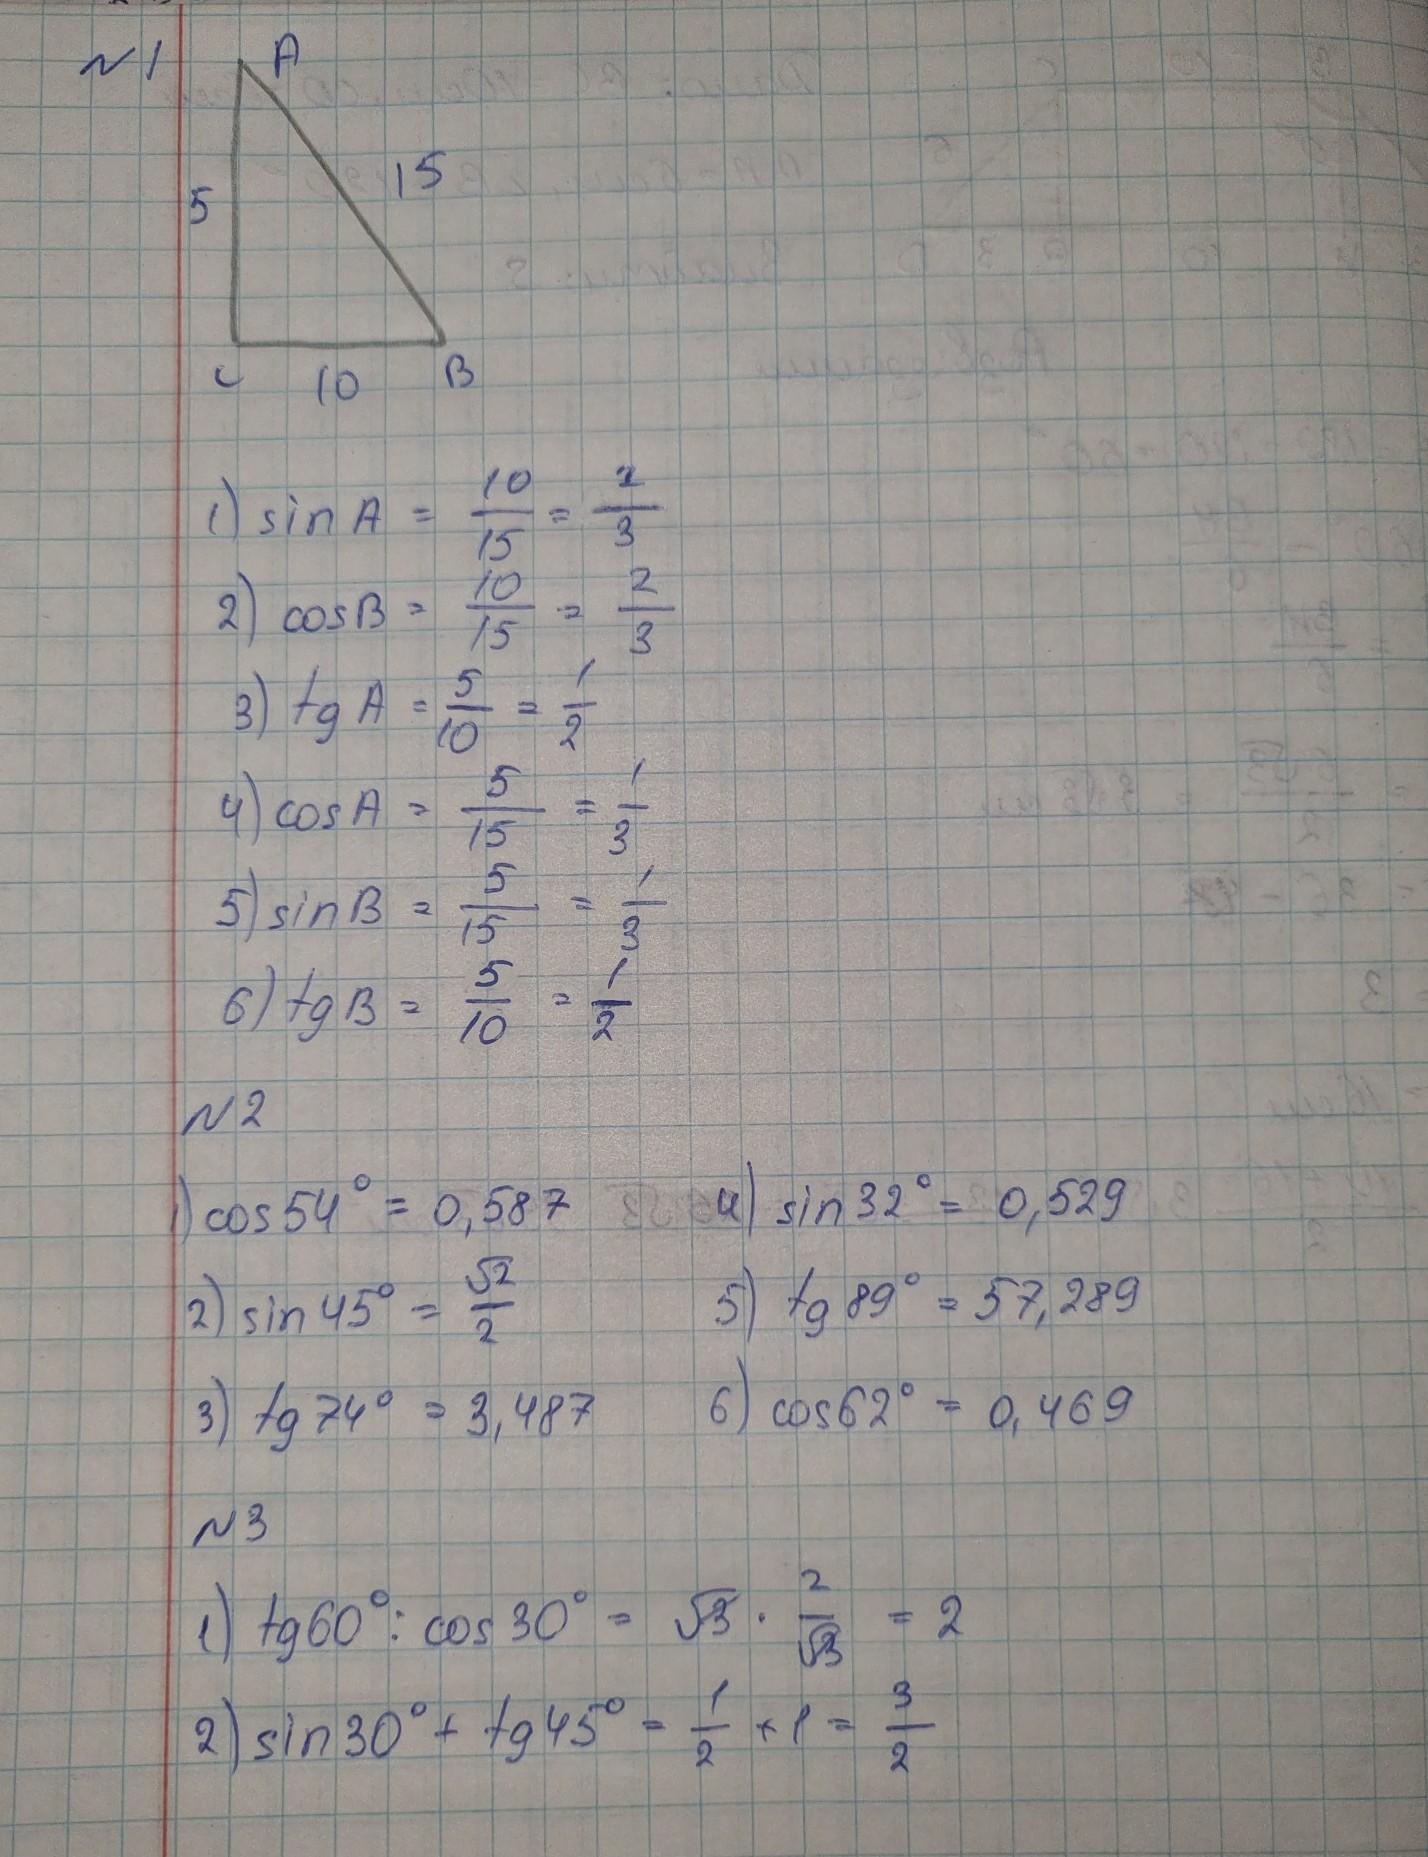 N1
A
5
15
C
10
B
1) sin A = 10/15 = 2/3
2) cos B = 10/15 = 2/3
3) tg A = 5/10 = 1/2
4) cos A = 5/15 = 1/3
5) sin B = 5/15 = 1/3
6) tg B = 5/10 = 1/2
N2
1) cos 54° = 0,587
4) sin 32° = 0,529
2) sin 45° = √2/2
5) tg 89° = 57,289
3) tg 74° = 3,487
6) cos 62° = 0,469
N3
1) tg 60° : cos 30° = √3 · 2/√3 = 2
2) sin 30° + tg 45° = 1/2 + 1 = 3/2